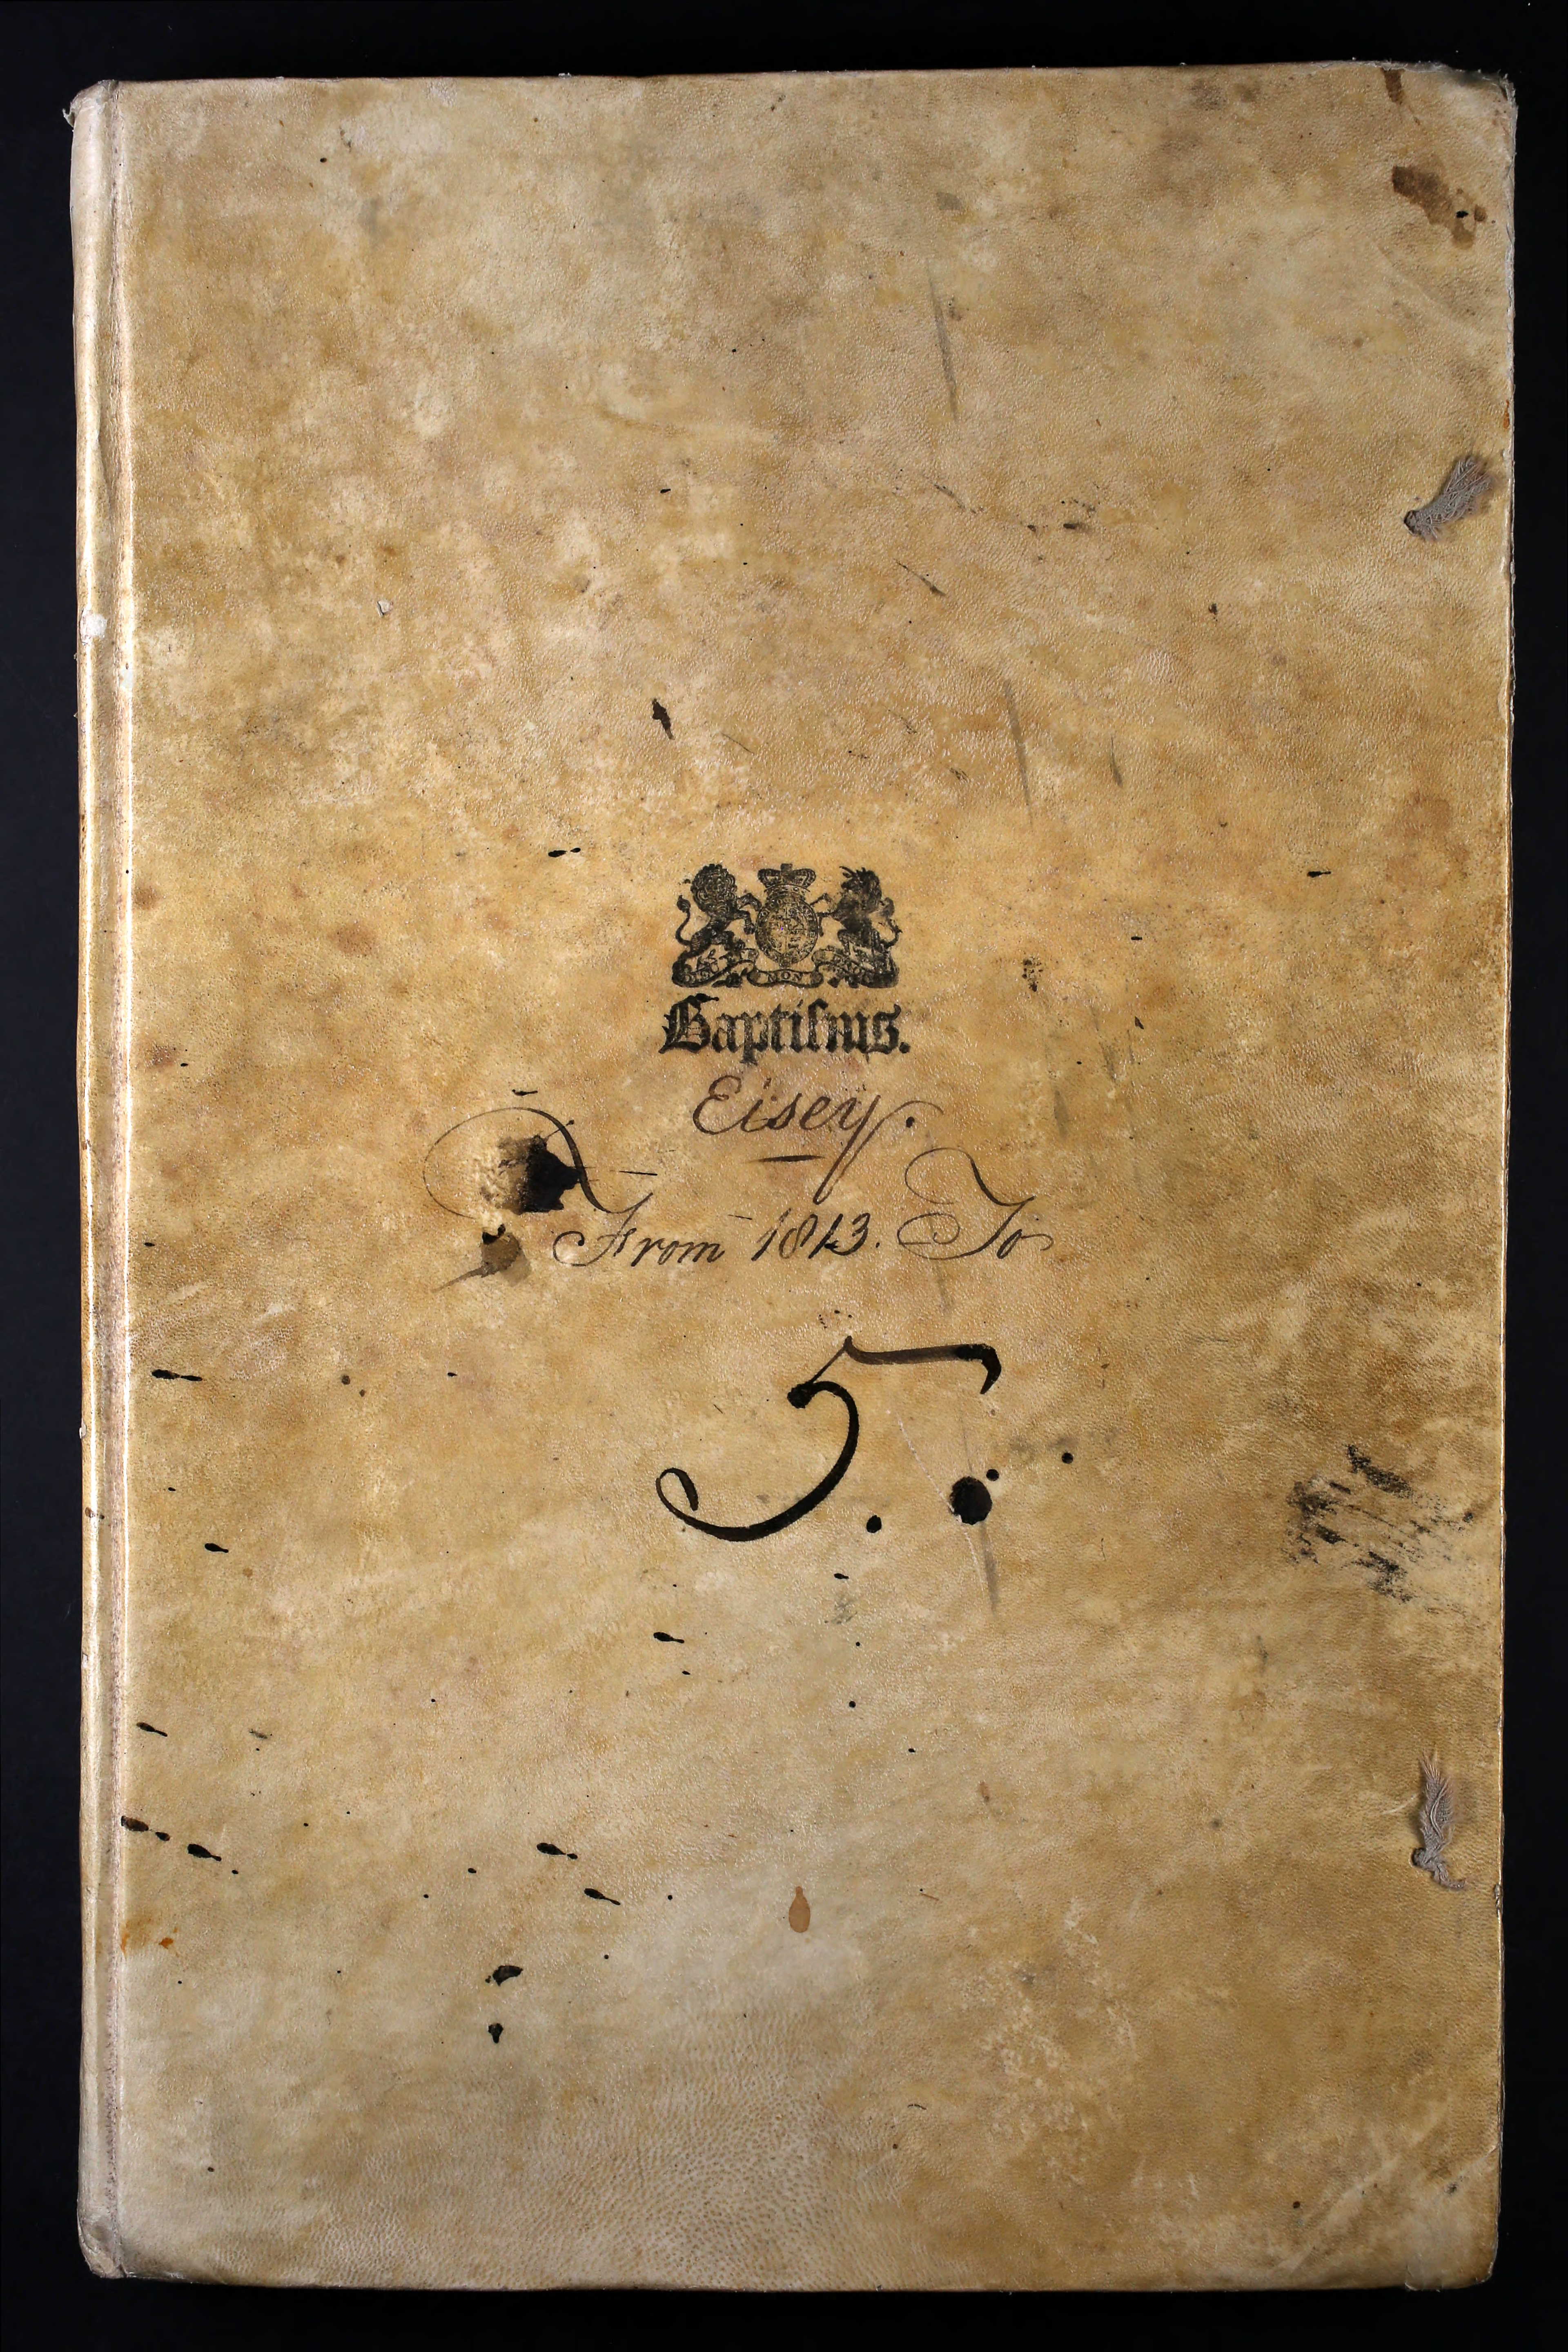 MON
Baptisms.
Eisey.
From 1813. To
5.